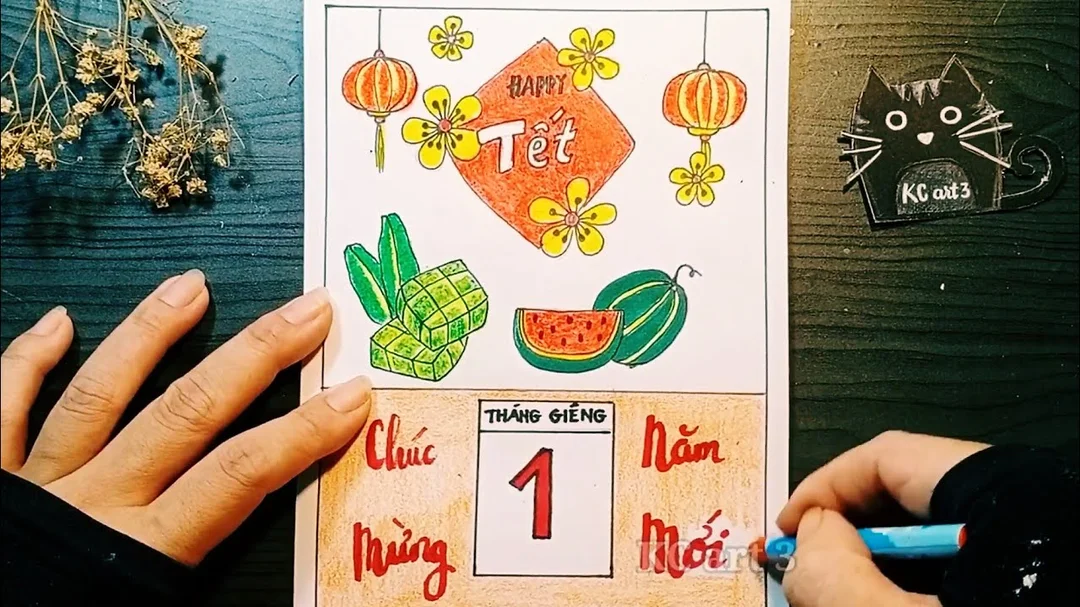 HAPPY
Tết
KC art 3
THÁNG GIÊNG
1
Chúc
Năm
Mừng
Mới
KC art 3